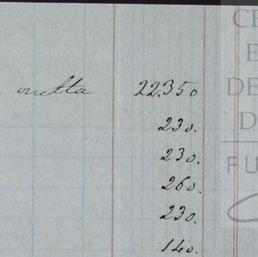 vuelta 22.350
230.
230.
260.
230.
140.
CE
E
DE
D
FU